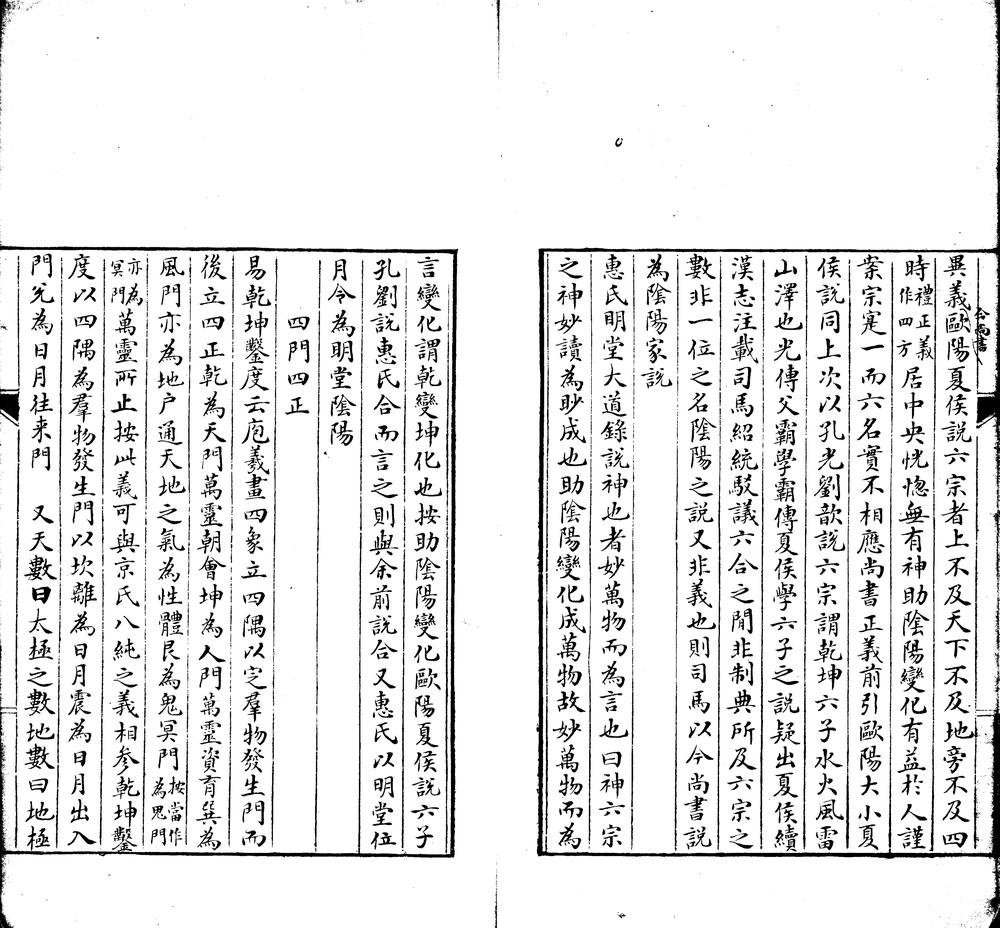 異義歐陽夏侯說六宗者上不及天下不及地旁不及四
時禮正義作四方居中央恍惚無有神助陰陽變化有益於人謹
案宗寔一而六名實不相應尚書正義前引歐陽大小夏
侯說同上次以孔光劉歆說六宗謂乾坤六子水火風雷
山澤也光傳父霸學霸傳夏侯學六子之說疑出夏侯續
漢志注載司馬紹統駁議六合之閒非制典所及六宗之
數非一位之名陰陽之說又非義也則司馬以今尚書說
為陰陽家說
惠氏明堂大道錄說神也者妙萬物而為言也曰神六宗
之神妙讀為眇成也助陰陽變化成萬物故妙萬物而為
言變化謂乾變坤化也按助陰陽變化歐陽夏侯說六子
孔劉說惠氏合而言之則與余前說合又惠氏以明堂位
月令為明堂陰陽
四門四正
易乾坤鑿度云庖羲畫四象立四隅以定羣物發生門而
後立四正乾為天門萬靈朝會坤為人門萬靈資育巽為
風門亦為地户通天地之氣為性體艮為鬼冥門按當作為鬼門
亦為冥門萬靈所止按此義可與京氏八純之義相參乾坤鑿
度以四隅為羣物發生門以坎離為日月震為日月出入
門兌為日月往来門　又天數曰太極之數地數曰地極